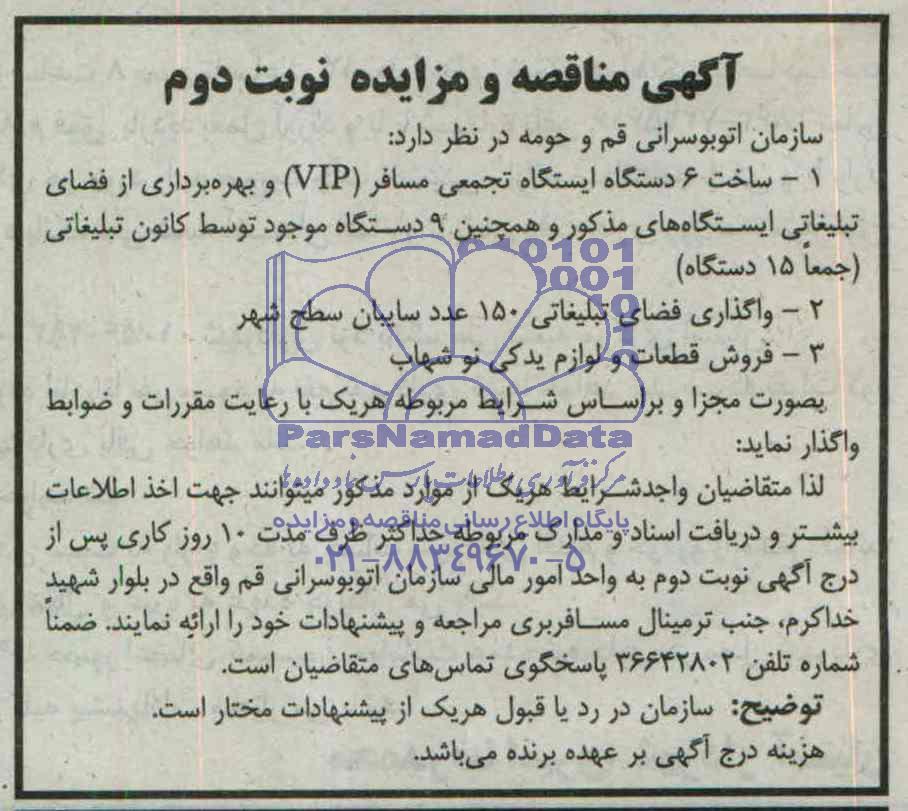 آگهی مناقصه و مزایده نوبت دوم
سازمان اتوبوسرانی قم و حومه در نظر دارد:
۱ – ساخت ۶ دستگاه ایستگاه تجمعی مسافر (VIP) و بهره‌برداری از فضای
تبلیغاتی ایستگاه‌های مذکور و همچنین ۹ دستگاه موجود توسط کانون تبلیغاتی
(جمعاً ۱۵ دستگاه)
۲ – واگذاری فضای تبلیغاتی ۱۵۰ عدد سایبان سطح شهر
۳ – فروش قطعات و لوازم یدکی نو شهاب
بصورت مجزا و براساس شرایط مربوطه هریک با رعایت مقررات و ضوابط
واگذار نماید:
لذا متقاضیان واجدشرایط هریک از موارد مذکور میتوانند جهت اخذ اطلاعات
بیشتر و دریافت اسناد و مدارک مربوطه حداکثر ظرف مدت ۱۰ روز کاری پس از
درج آگهی نوبت دوم به واحد امور مالی سازمان اتوبوسرانی قم واقع در بلوار شهید
خداکرم، جنب ترمینال مسافربری مراجعه و پیشنهادات خود را ارائه نمایند. ضمناً
شماره تلفن ۳۶۶۴۲۸۰۲ پاسخگوی تماس‌های متقاضیان است.
توضیح: سازمان در رد یا قبول هریک از پیشنهادات مختار است.
هزینه درج آگهی بر عهده برنده می‌باشد.
ParsNamadData
مرکز فرآوری اطلاعات پارس نماد داده‌ها
پایگاه اطلاع رسانی مناقصه و مزایده
۰۲۱–۸۸۳۴۹۶۷۰–۵